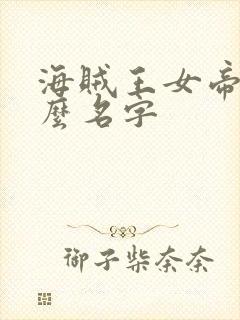 海贼王女帝
麼名字
御子柴奈奈